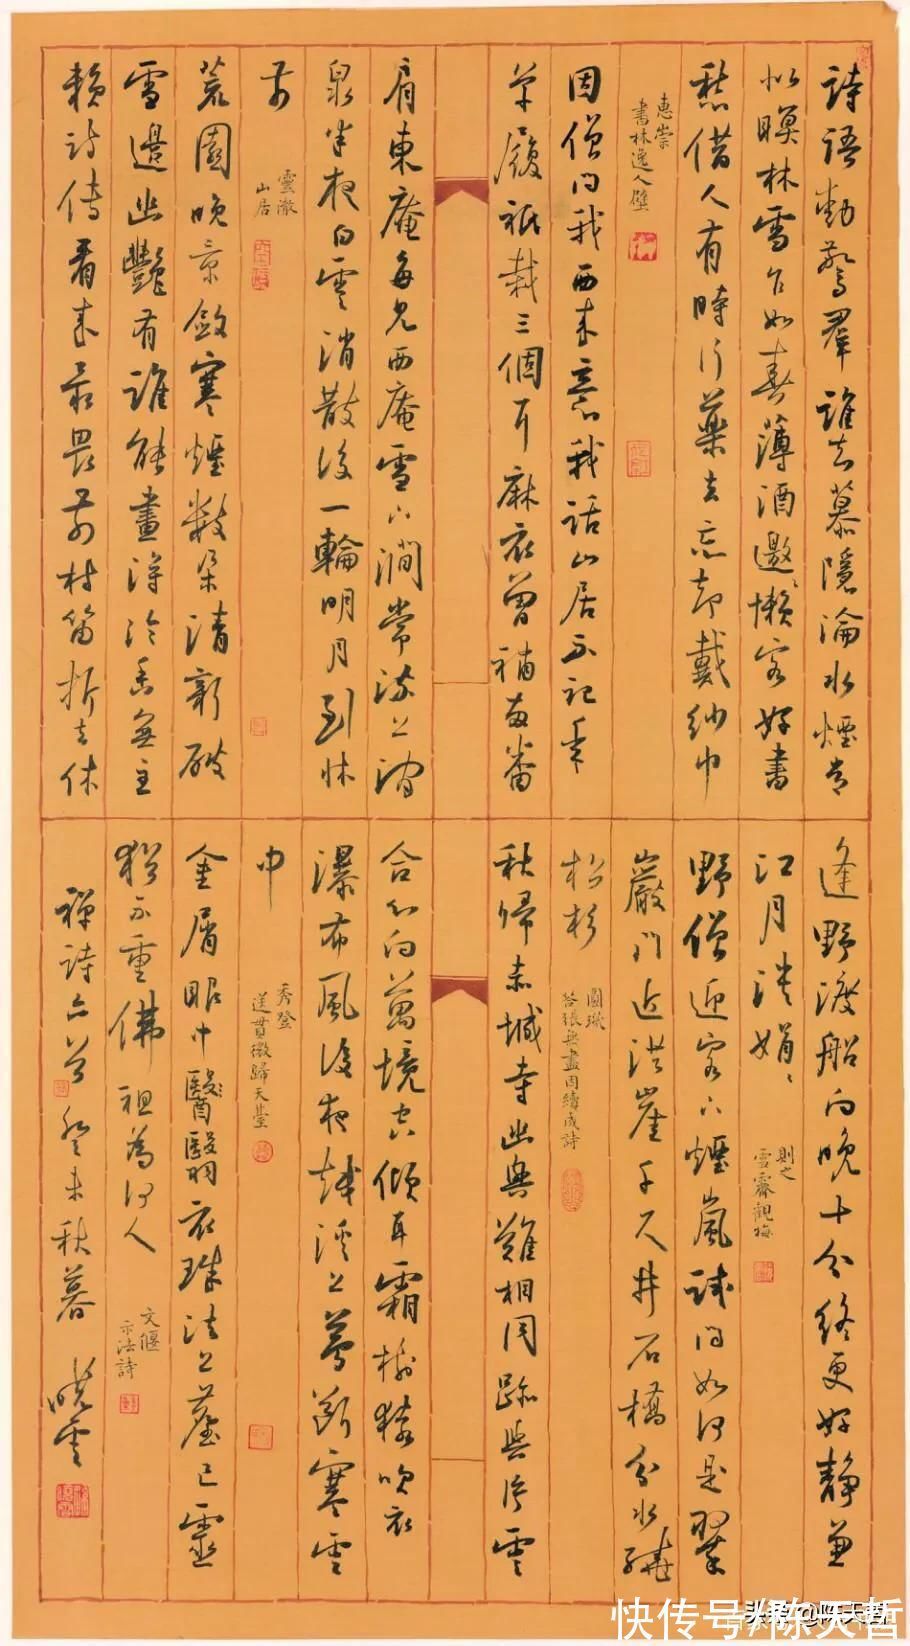 詩語動驚羣誰知慕隱淪水煙常
似暝林雪乍如春薄酒邀懶客好書
愁借人有時行藥去忘卻戴紗巾
惠崇
書林逸人壁
因僧問我西來意我話山居不記年
草履祇裁三個耳麻衣曾補兩番
肩東庵每見西庵雪下澗常流上澗
泉半夜白雲消散後一輪明月到牀
前
雲澈
山居
荒園晚景斂寒煙數朵清新破
雪邊幽豔有誰能畫得冷香無主
賴詩傳看來最畏前村笛折去休
逢野渡船向晚十分終更好靜兼
江月淡娟〻
則之
雪霽觀梅
野僧迎客下煙嵐試問如何是翠
巖門近洪崖千尺井石橋分水繞
松杉
圓璣
答張無盡因續成詩
秋歸赤城寺幽興難相同跡與片雲
合心向萬境空傾耳霜樹猿吹衣
瀑布風後夜越溪上夢斷寒雲
中
秀登
送貫微歸天臺
金屑眼中翳衣珠法上塵己靈
猶不重佛祖為何人
文偃
示法詩
禪詩六首癸未秋暮曉雲
快传号/陈天哲